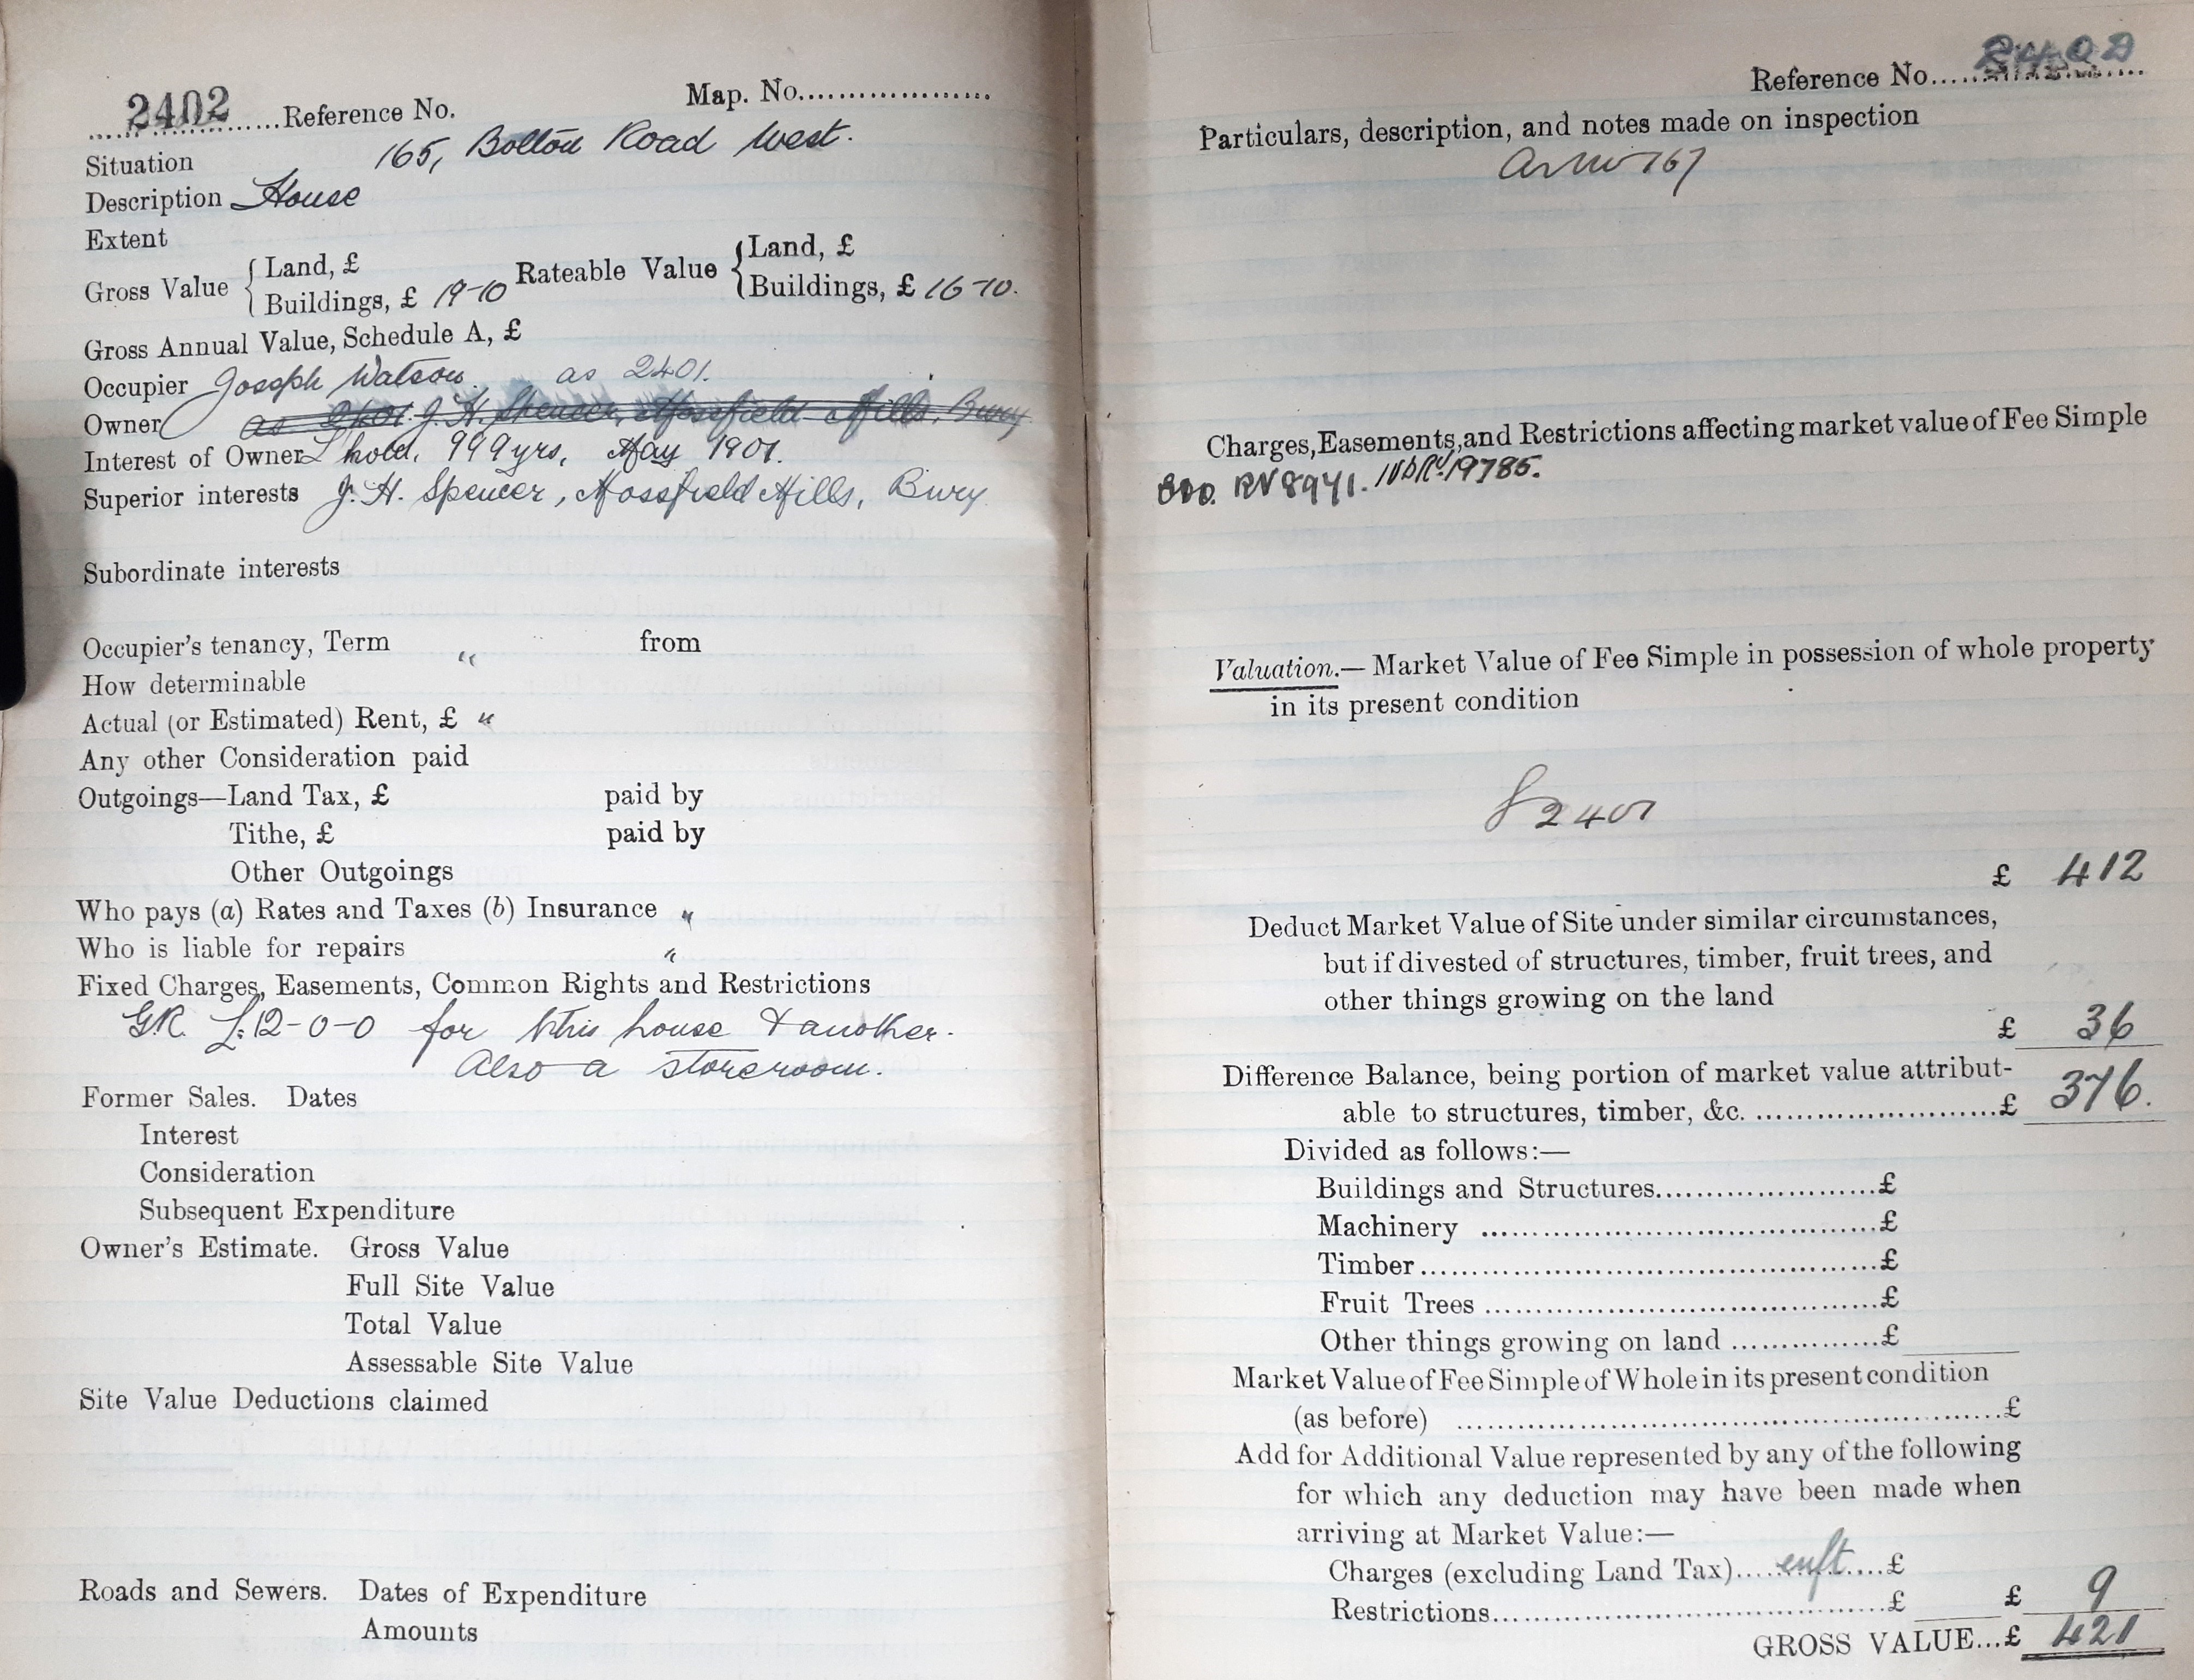 2402 Reference No. Map. No.
Situation 165, Bolton Road West.
Description House
Extent
Gross Value { Land, £
Buildings, £ 19-10 Rateable Value { Land, £
Buildings, £ 16-10.
Gross Annual Value, Schedule A, £
Occupier Joseph Watson. as 2401.
Owner as 2401. J. H. Spencer, Mossfield Mills, Bury
Interest of Owner L'hold, 999 yrs, May 1901.
Superior interests J. H. Spencer, Mossfield Mills, Bury
Subordinate interests
Occupier's tenancy, Term " from
How determinable
Actual (or Estimated) Rent, £ "
Any other Consideration paid
Outgoings—Land Tax, £ paid by
Tithe, £ paid by
Other Outgoings
Who pays (a) Rates and Taxes (b) Insurance "
Who is liable for repairs "
Fixed Charges, Easements, Common Rights and Restrictions
G.R. £12-0-0 for this house & another.
Also a storeroom.
Former Sales. Dates
Interest
Consideration
Subsequent Expenditure
Owner's Estimate. Gross Value
Full Site Value
Total Value
Assessable Site Value
Site Value Deductions claimed
Roads and Sewers. Dates of Expenditure
Amounts
Reference No. 2402
Particulars, description, and notes made on inspection
as No 167
Charges, Easements, and Restrictions affecting market value of Fee Simple
RV 8941. 19785.
Valuation.— Market Value of Fee Simple in possession of whole property
in its present condition
2401
£ 412
Deduct Market Value of Site under similar circumstances,
but if divested of structures, timber, fruit trees, and
other things growing on the land
£ 36
Difference Balance, being portion of market value attribut-
able to structures, timber, &c. £ 376.
Divided as follows:—
Buildings and Structures £
Machinery £
Timber £
Fruit Trees £
Other things growing on land £
Market Value of Fee Simple of Whole in its present condition
(as before) £
Add for Additional Value represented by any of the following
for which any deduction may have been made when
arriving at Market Value:—
Charges (excluding Land Tax) £
Restrictions £ £ 9
GROSS VALUE...£ 421